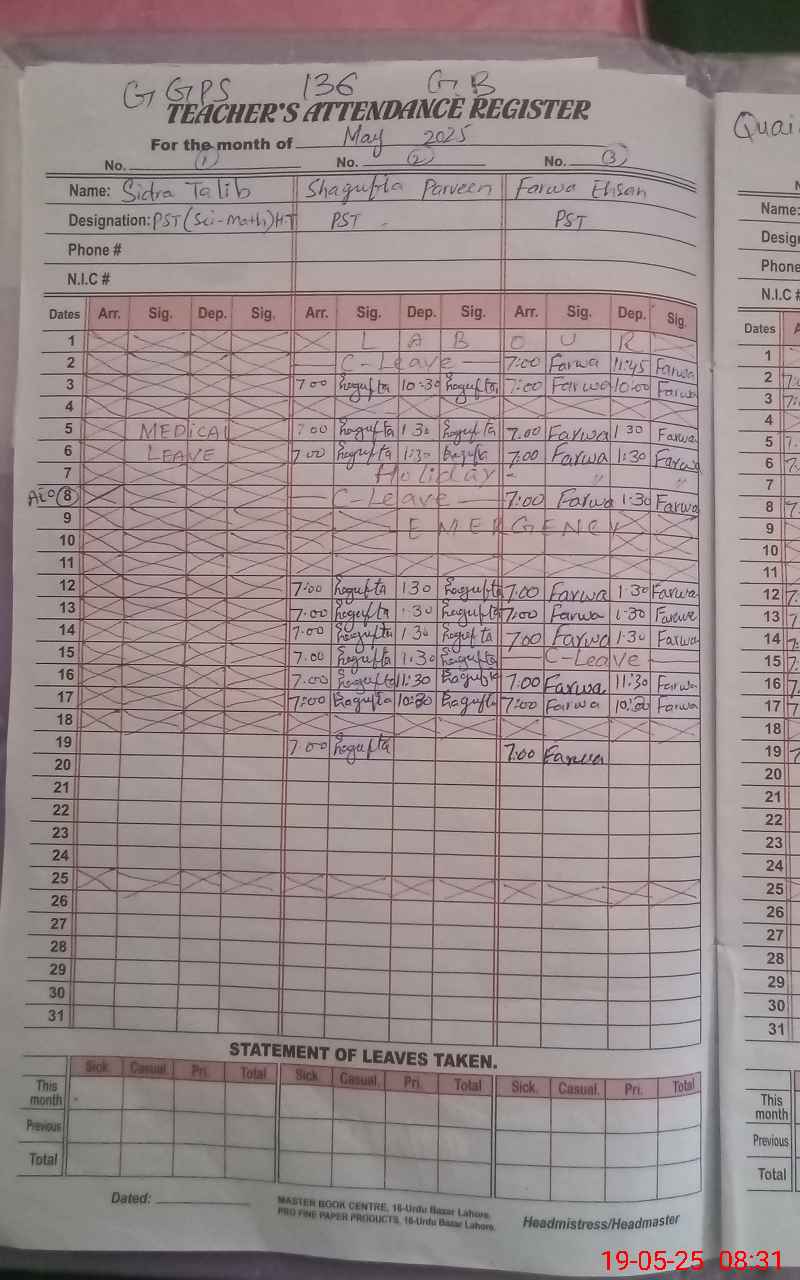 G GPS 136 G.B
TEACHER'S ATTENDANCE REGISTER
For the month of May 2025
No. (1) No. (2) No. (3)
Name: Sidra Talib Shagufta Parveen Farwa Ehsan
Designation: PST (Sci-Math) H.T PST PST
Phone #
N.I.C #
Dates Arr. Sig. Dep. Sig. Arr. Sig. Dep. Sig. Arr. Sig. Dep. Sig.
1 L A B O U R
2 C-Leave 7:00 Farwa 11:45 Farwa
3 7 00 Shagufta 10:30 Shagufta 7:00 Farwa 10:00 Farwa
4
5 MEDICAL 7 00 Shagufta 1 30 Shagufta 7.00 Farwa 1 30 Farwa
6 LEAVE 7.00 Shagufta 1:30 Shagufta 7:00 Farwa 1:30 Farwa
7 Holiday - " "
8 C-Leave 7:00 Farwa 1:30 Farwa
9 E M E R G E N C Y
10
11
12 7:00 Shagufta 1 30 Shagufta 7.00 Farwa 1.30 Farwa
13 7.00 Shagufta 1.30 Shagufta 7:00 Farwa 1.30 Farwa
14 7.00 Shagufta 1 30 Shagufta 7 00 Farwa 1.30 Farwa
15 7.00 Shagufta 1.30 Shagufta C-Leave
16 7.00 Shagufta 11:30 Shagufta 7.00 Farwa 11:30 Farwa
17 7:00 Shagufta 10:30 Shagufta 7:00 Farwa 10:30 Farwa
18
19 7.00 Shagufta 7:00 Farwa
20
21
22
23
24
25
26
27
28
29
30
31
STATEMENT OF LEAVES TAKEN.
Sick Casual. Pri. Total Sick Casual. Pri. Total Sick. Casual. Pri. Total
This month
Previous
Total
Dated:
MASTER BOOK CENTRE, 16-Urdu Bazar Lahore.
PRO FINE PAPER PRODUCTS, 16-Urdu Bazar Lahore.
Headmistress/Headmaster
Name:
Phone
N.I.C #
Dates
1
2
3
4
5
6
7
8
9
10
11
12
13
14
15
16
17
18
19
20
21
22
23
24
25
26
27
28
29
30
31
This month
Previous
Total
19-05-25 08:31